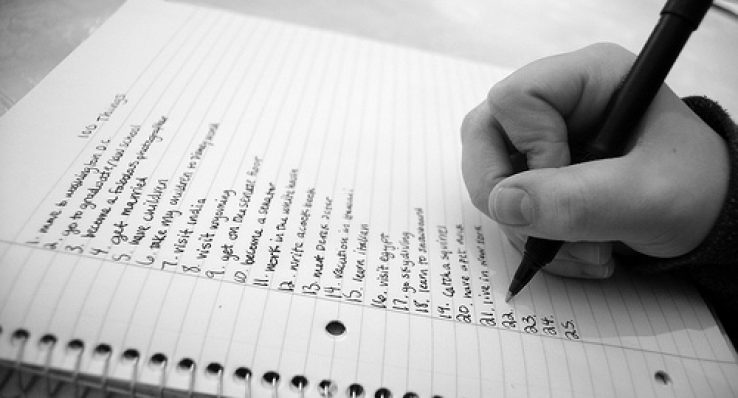 100 Things
1. move to washington D.C.
2. go to graduate/law school
3. become a fabulous photographer
4. get married
5. have children
6. take my children to Disney world
7. visit India
8. visit wyoming
9. get on the senate floor
10. become a senator
11. work in the white house
12. write a cook book
13. meet Derek Jeter
14. vacation in
15. learn Italian
16. visit Egypt
17. go skydiving
18. learn to snowboard
19. catch a squirrel
20. have a pet duck
21. live in new york
22.
23.
24.
25.